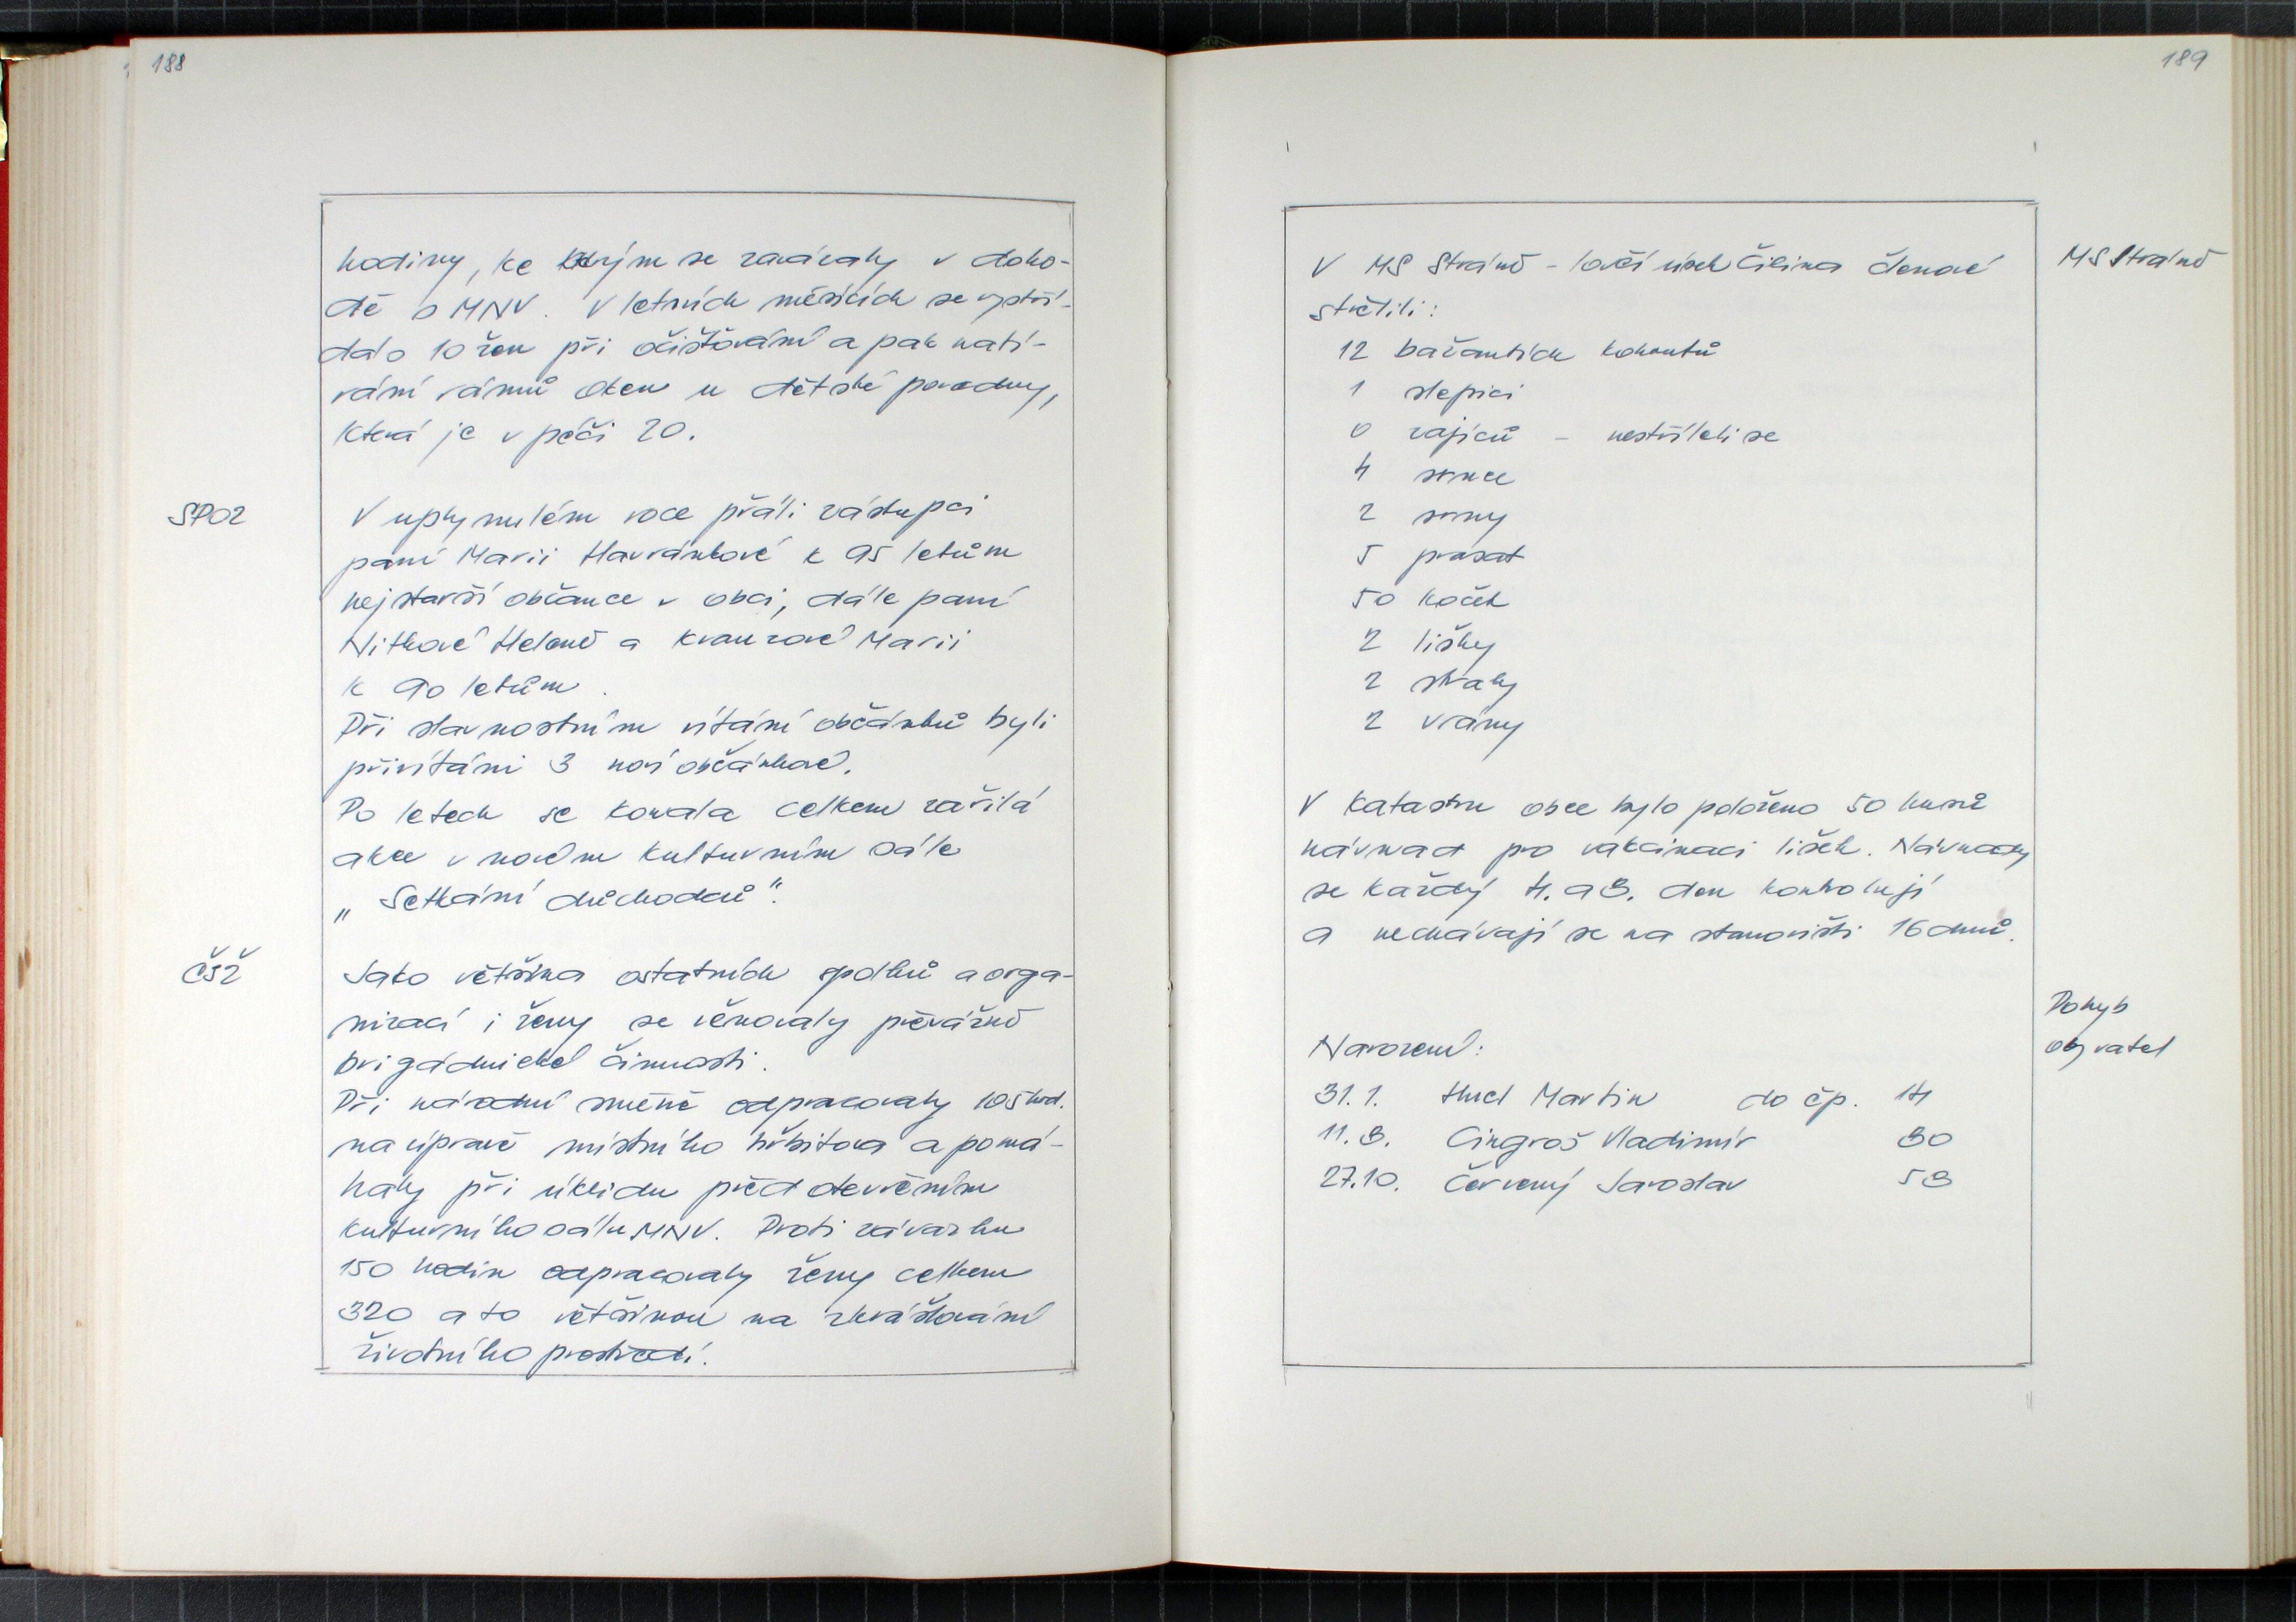 188
hodiny, ke kterým se zavázaly v doho-
dě s MNV. V letních měsících se vystří-
dalo 10 žen při očišťování a pak natí-
rání rámů oken u dětské poradny,
která je v péči žen.
SPOZ
V uplynulém roce přáli zástupci
paní Marii Havránkové k 95 letům
nejstarší občance v obci, dále paní
Nitkové Heleně a Krauzové Marii
k 90 letům.
Při slavnostním vítání občánků byli
přivítáni 3 noví občánkové.
Po letech se konala celkem zařilá
akce v novém kulturním sále
„Setkání důchodců".
ČSŽ
Jako většina ostatních spolků a orga-
nizací i ženy se věnovaly převážně
brigádnické činnosti.
Při národní směně odpracovaly 105 hod.
na úpravě místního hřbitova a pomá-
haly při úklidu před otevřením
kulturního sálu MNV. Proti závazku
150 hodin odpracovaly ženy celkem
320 a to většinou na zkrášlování
životního prostředí.
189
MS Stráně
V MS Stráně - lovčí úsek Čilina členové
střelili:
12 bažantích kohoutů
1 slepici
0 zajíců - nestříleli se
4 srnce
2 srny
5 prasat
50 koček
2 lišky
2 straky
2 vrány
V katastru obce bylo položeno 50 kusů
návnad pro vakcinaci lišek. Návnady
se každý 4. a 8. den kontrolují
a nechávají se na stanovišti 16 dnů.
Pohyb
obyvatel
Narození:
31. 1. Hucl Martin do čp. 14
11. 8. Cingroš Vladimír 80
27. 10. Červený Jaroslav 58